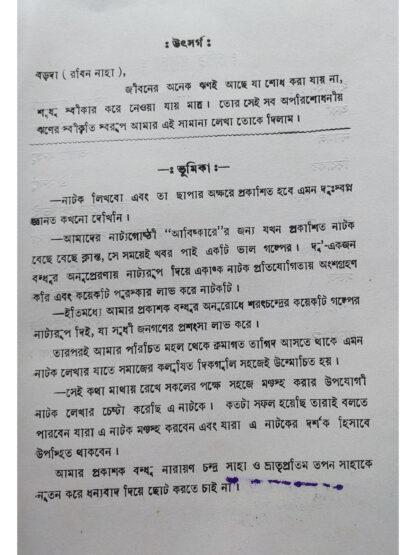 : উৎসর্গ :
বড়দা ( রবিন নাহা ),
জীবনের অনেক ঋণই আছে যা শোধ করা যায় না,
শুধু স্বীকার করে নেওয়া যায় মাত্র। তোর সেই সব অপরিশোধনীয়
ঋণের স্বীকৃতি স্বরূপ আমার এই সামান্য লেখা তোকে দিলাম।
—: ভূমিকা :—
—নাটক লিখবো এবং তা ছাপার অক্ষরে প্রকাশিত হবে এমন দুঃস্বপ্ন
জ্ঞানত কখনো দেখিনি।
—আমাদের নাট্যগোষ্ঠী “আবিষ্কারে”র জন্য যখন প্রকাশিত নাটক
বেছে বেছে ক্লান্ত, সে সময়েই খবর পাই একটি ভাল গল্পের। দু'-একজন
বন্ধুর অনুপ্রেরণায় নাট্যরূপ দিয়ে একাঙ্ক নাটক প্রতিযোগিতায় অংশগ্রহণ
করি এবং কয়েকটি পুরস্কার লাভ করে নাটকটি।
—ইতিমধ্যে আমার প্রকাশক বন্ধুর অনুরোধে শরৎচন্দ্রের কয়েকটি গল্পের
নাট্যরূপ দিই, যা সুধী জনগণের প্রশংসা লাভ করে।
তারপরই আমার পরিচিত মহল থেকে ক্রমাগত তাগিদ আসতে থাকে এমন
নাটক লেখার যাতে সমাজের কলুষিত দিকগুলি সহজেই উন্মোচিত হয়।
—সেই কথা মাথায় রেখে সকলের পক্ষে সহজে মঞ্চস্থ করার উপযোগী
নাটক লেখার চেষ্টা করেছি এ নাটকে। কতটা সফল হয়েছি তারাই বলতে
পারবেন যারা এ নাটক মঞ্চস্থ করবেন এবং যারা এ নাটকের দর্শক হিসাবে
উপস্থিত থাকবেন।
আমার প্রকাশক বন্ধু নারায়ণ চন্দ্র সাহা ও ভ্রাতৃপ্রতিম তপন সাহাকে
নূতন করে ধন্যবাদ দিয়ে ছোট করতে চাই না।